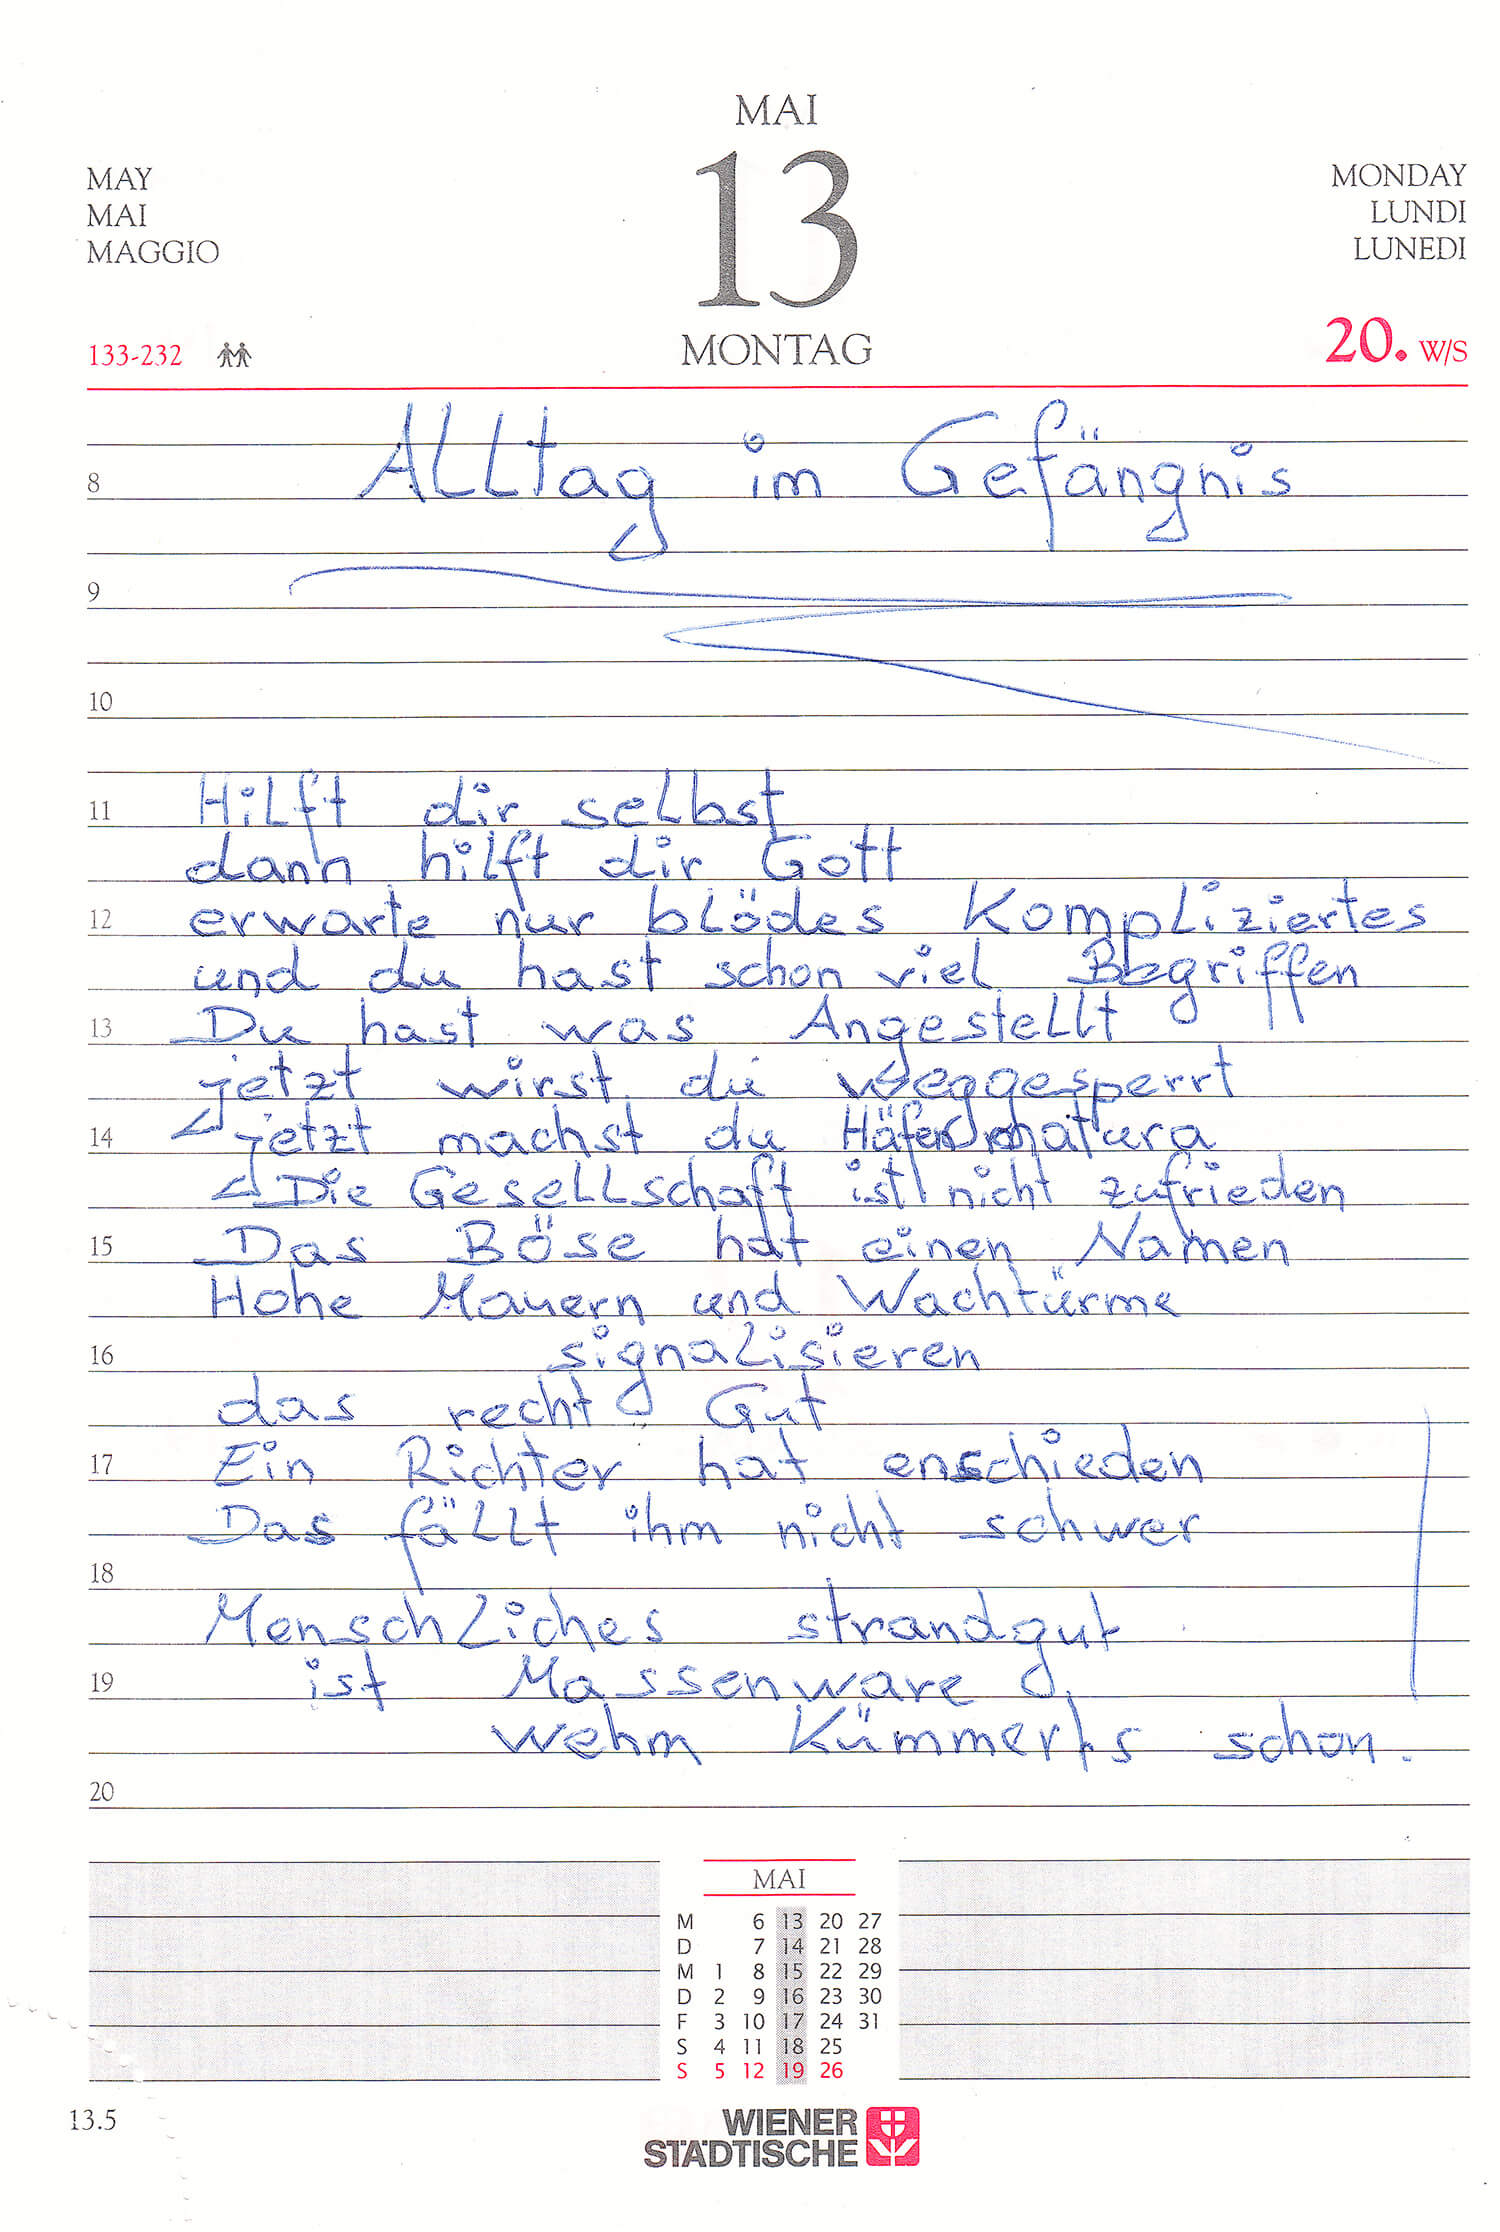 MAI
MAY
MAI
MAGGIO
13
MONDAY
LUNDI
LUNEDI
133-232
MONTAG
20. W/S
Alltag im Gefängnis
8
9
10
11 Hilft dir selbst
dann hilft dir Gott
12 erwarte nur blödes Kompliziertes
und du hast schon viel Begriffen
13 Du hast was Angestellt
jetzt wirst du weggesperrt
14 jetzt machst du Häfenmatura
Die Gesellschaft ist nicht zufrieden
15 Das Böse hat einen Namen
Hohe Mauern und Wachtürme
16 signalisieren
das recht Gut
17 Ein Richter hat enschieden
Das fällt ihm nicht schwer
18
Menschliches strandgut
19 ist Massenware
wehm Kümmert's schon.
20
MAI
M 6 13 20 27
D 7 14 21 28
M 1 8 15 22 29
D 2 9 16 23 30
F 3 10 17 24 31
S 4 11 18 25
S 5 12 19 26
13.5
WIENER
STÄDTISCHE